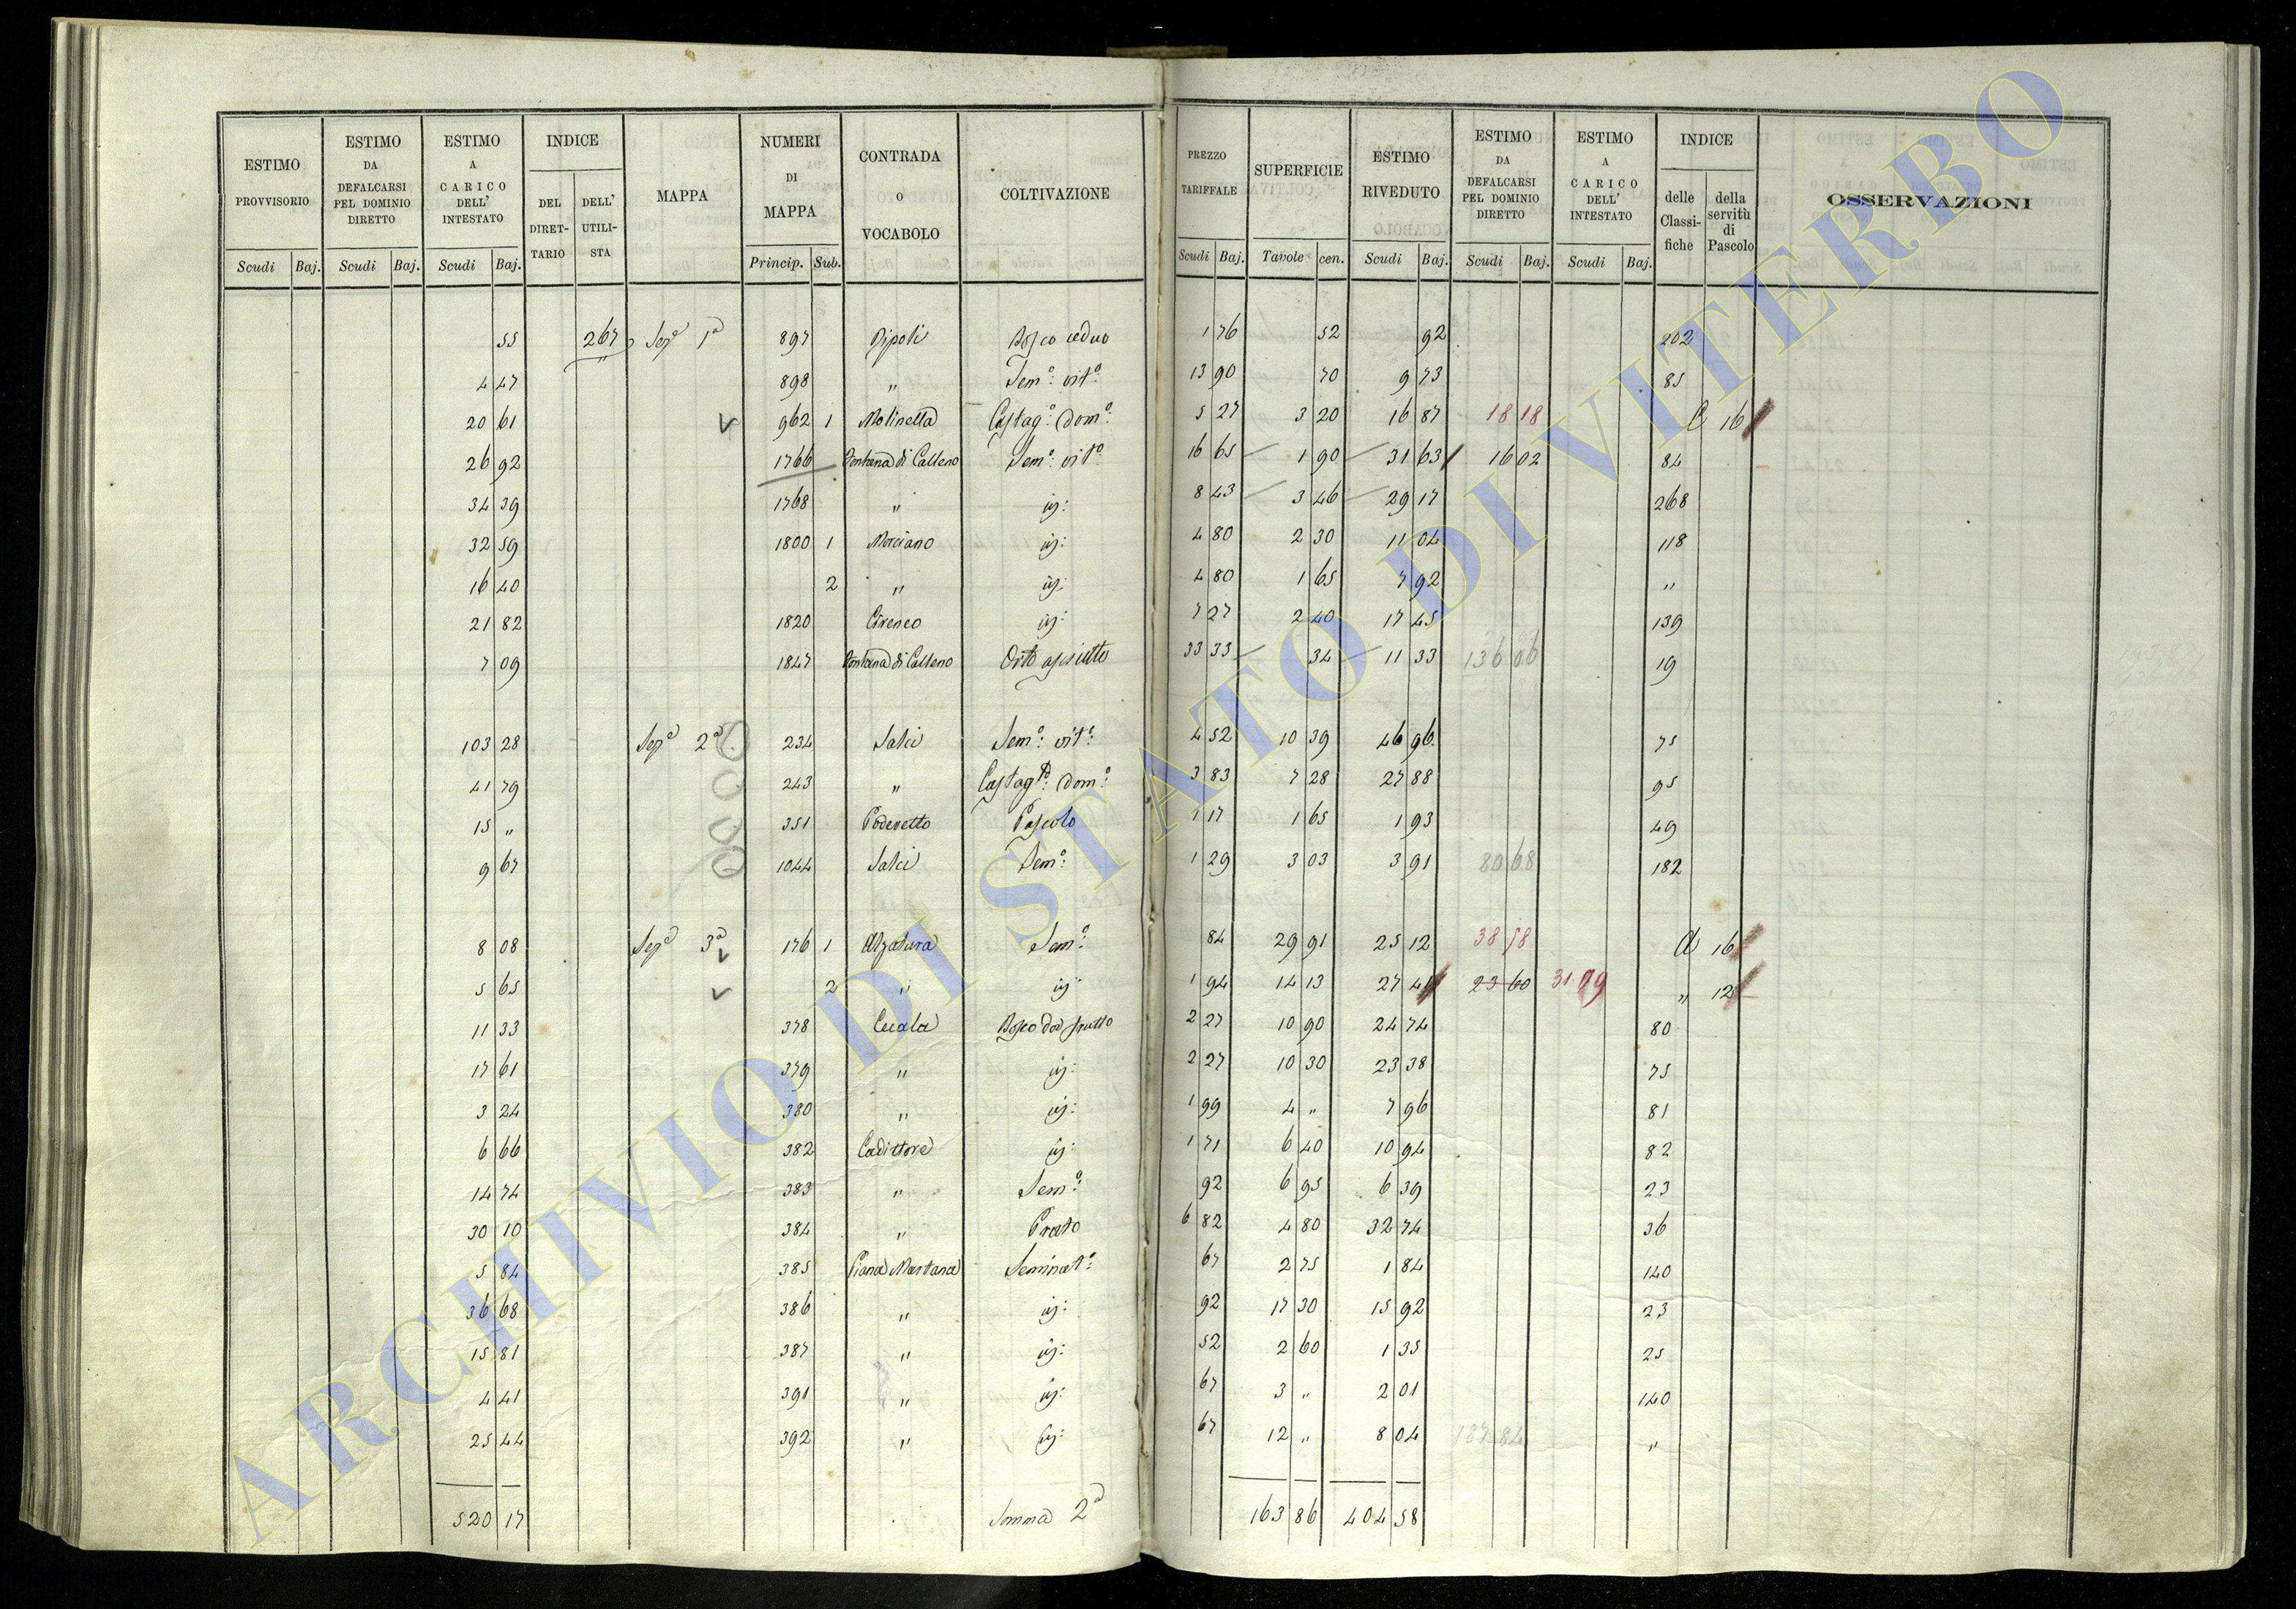 ESTIMO PROVVISORIO | ESTIMO DA DEFALCARSI PEL DOMINIO DIRETTO | ESTIMO A CARICO DELL' INTESTATO | INDICE DEL DIRET-TARIO | DELL' UTILI-STA | MAPPA | NUMERI DI MAPPA | CONTRADA O VOCABOLO | COLTIVAZIONE | PREZZO TARIFFALE | SUPERFICIE | ESTIMO RIVEDUTO | ESTIMO DA DEFALCARSI PEL DOMINIO DIRETTO | ESTIMO A CARICO DELL' INTESTATO | INDICE delle Classi-fiche | della servitù di Pascolo | OSSERVAZIONI
Scudi Baj. | Scudi Baj. | Scudi Baj. | Princip. Sub. | Scudi Baj. | Tavole cen. | Scudi Baj. | Scudi Baj. | Scudi Baj.
55 267 Sez.a 1a 897 Ripoli Bosco ceduo 1 76 52 92 202
4 47 898 " Sem.o vit.o 13 90 70 9 73 85
20 61 962 1 Molinella Castag.o dom.o 5 27 3 20 16 87 18 18 16
26 92 1766 Fontana di Calleno Sem.o vit.o 16 65 1 90 31 63 16 02 84
34 39 1768 " id: 8 43 3 46 29 17 268
32 59 1800 1 Morciano id: 4 80 2 30 11 04 118
16 40 2 " id: 4 80 1 65 7 92 "
21 82 1820 Cireneo id: 7 27 2 40 17 45 139
7 09 1847 Fontana di Calleno Orto asciutto 33 33 34 11 33 136 06 19
103 28 Sez.a 2a 234 Salci Sem.o vit.o 4 52 10 39 46 96 75
41 79 243 " Castag.to dom.o 3 83 7 28 27 88 95
15 " 351 Poderetto Pascolo 1 17 1 65 1 93 49
9 67 1044 Salci Sem.o 1 29 3 03 3 91 80 68 182
8 08 Sez.a 3a 176 1 Alzatura Sem.o 84 29 91 25 12 38 58 16
5 65 2 " id: 1 94 14 13 27 41 23 60 31.09 " 12
11 33 378 Cucala Bosco da frutto 2 27 10 90 24 74 80
17 61 379 " id: 2 27 10 30 23 38 75
3 24 380 " id: 1 99 4 " 7 96 81
6 66 382 Cadittore id: 1 71 6 40 10 94 82
14 74 383 " Sem.o 92 6 95 6 39 23
30 10 384 " Prato 6 82 4 80 32 74 36
5 84 385 Piana Martana Seminat.o 67 2 75 1 84 140
36 68 386 " id: 92 17 30 15 92 23
15 81 387 " id: 52 2 60 1 35 25
4 41 391 " id: 67 3 " 2 01 140
25 44 392 " id: 67 12 " 8 04 187 84 "
520 17 Somma 2a 163 86 404 58
ARCHIVIO DI STATO DI VITERBO